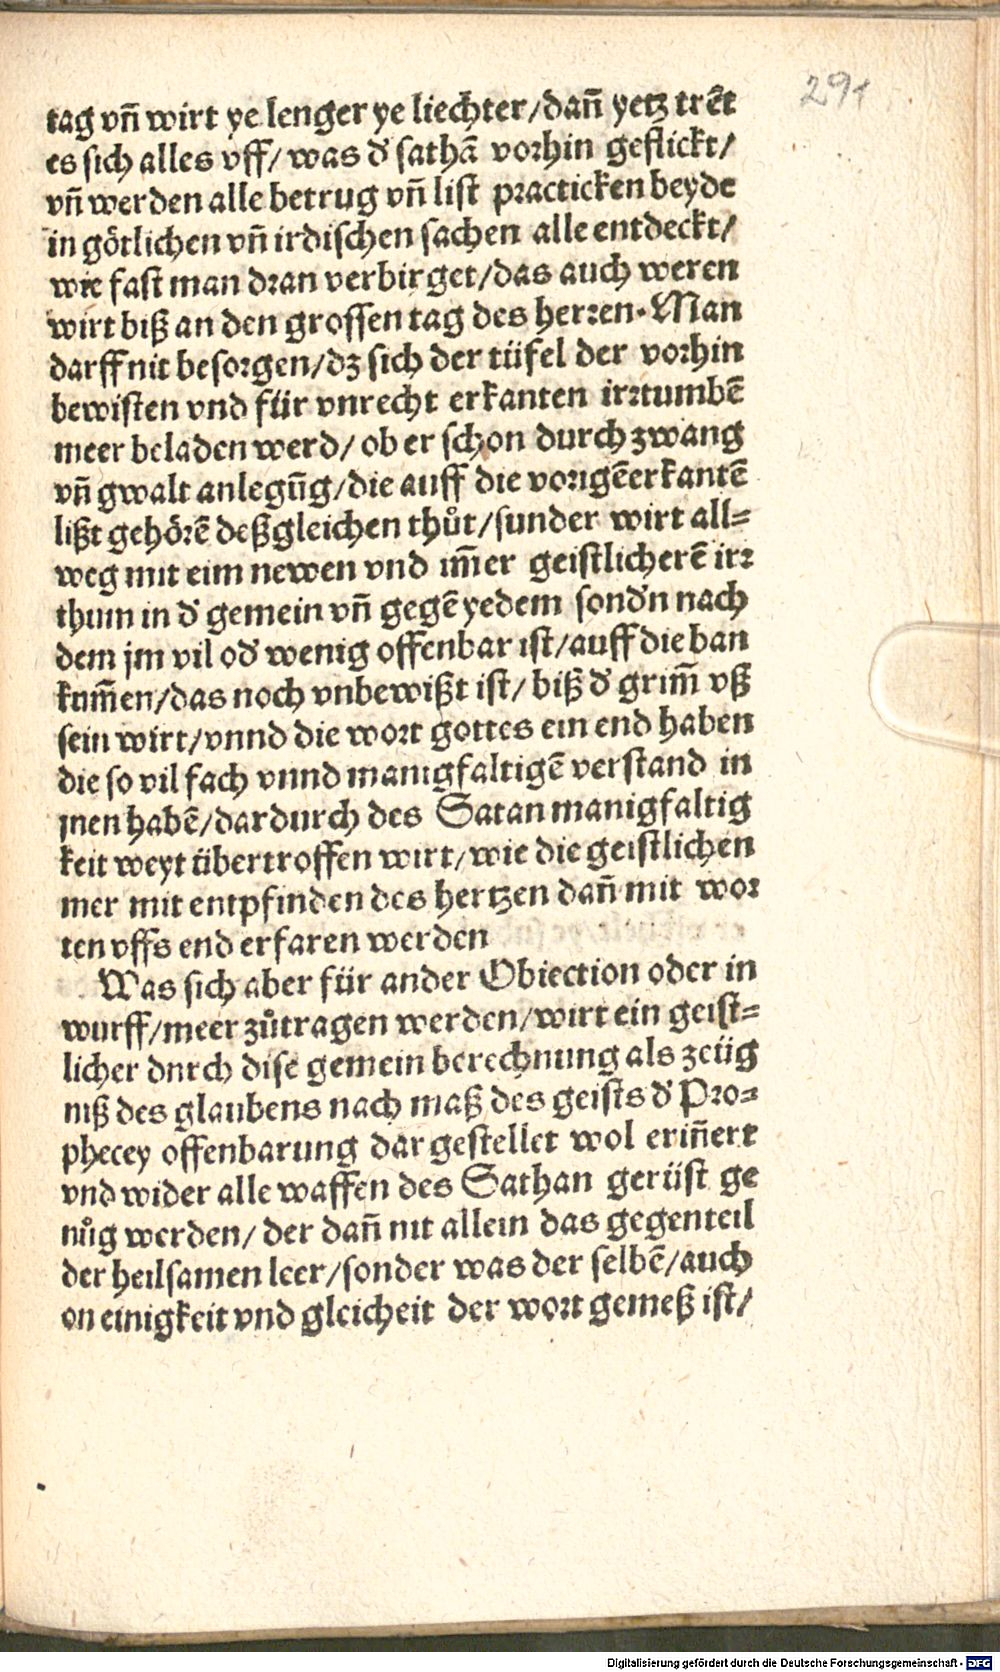 291
tag vñ wirt ye lenger ye liechter/dañ yetz trẽt
es sich alles vff/ was d' sathã vorhin geflickt/
vñ werden alle betrug vñ list practicken beyde
in götlichen vñ irdischen sachen alle entdeckt/
wie fast man dran verbirget/das auch weren
wirt biß an den grossen tag des herren. Man
darff nit besorgen/dz sich der tüfel der vorhin
bewisten vnd für vnrecht erkanten irrtumbẽ
meer beladen werd/ ob er schon durch zwang
vñ gwalt anlegũg/die auff die vorigẽ erkantẽ
lißt gehörẽ deßgleichen thůt/sunder wirt all=
weg mit eim newen vnd im̃er geistlicherẽ irr
thum in d' gemein vñ gegẽ yedem sond'n nach
dem jm vil od' wenig offenbar ist/auff die ban
kum̃en/das noch vnbewißt ist/ biß d' grim̃ vß
sein wirt/vnnd die wort gottes ein end haben
die so vil fach vnnd manigfaltigẽ verstand in
jnen habẽ/dardurch des Satan manigfaltig
keit weyt übertroffen wirt/wie die geistlichen
mer mit entpfinden des hertzen dañ mit wor
ten vffs end erfaren werden
Was sich aber für ander Obiection oder in
wurff/meer zůtragen werden/wirt ein geist=
licher dnrch dise gemein berechnung als zeüg
niß des glaubens nach maß des geists d' Pro=
phecey offenbarung dar gestellet wol eriñert
vnd wider alle waffen des Sathan gerüst ge
nůg werden/ der dañ nit allein das gegenteil
der heilsamen leer/sonder was der selbẽ/auch
on einigkeit vnd gleicheit der wort gemeß ist/
Digitalisierung gefördert durch die Deutsche Forschungsgemeinschaft - DFG